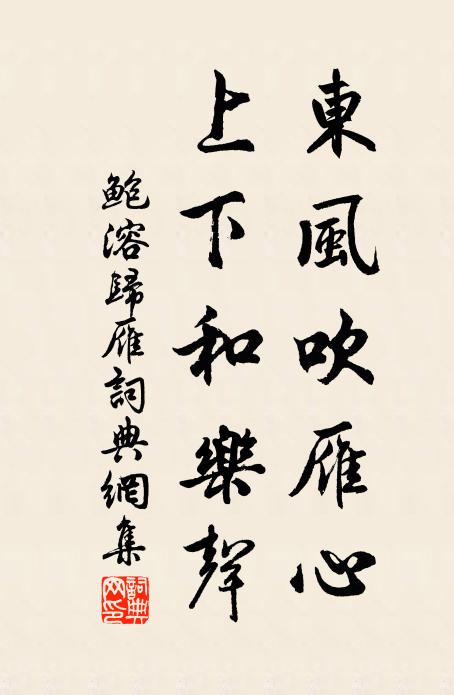 東風吹雁心
上下和樂聲
鮑溶歸雁詞典網集
詞典网印